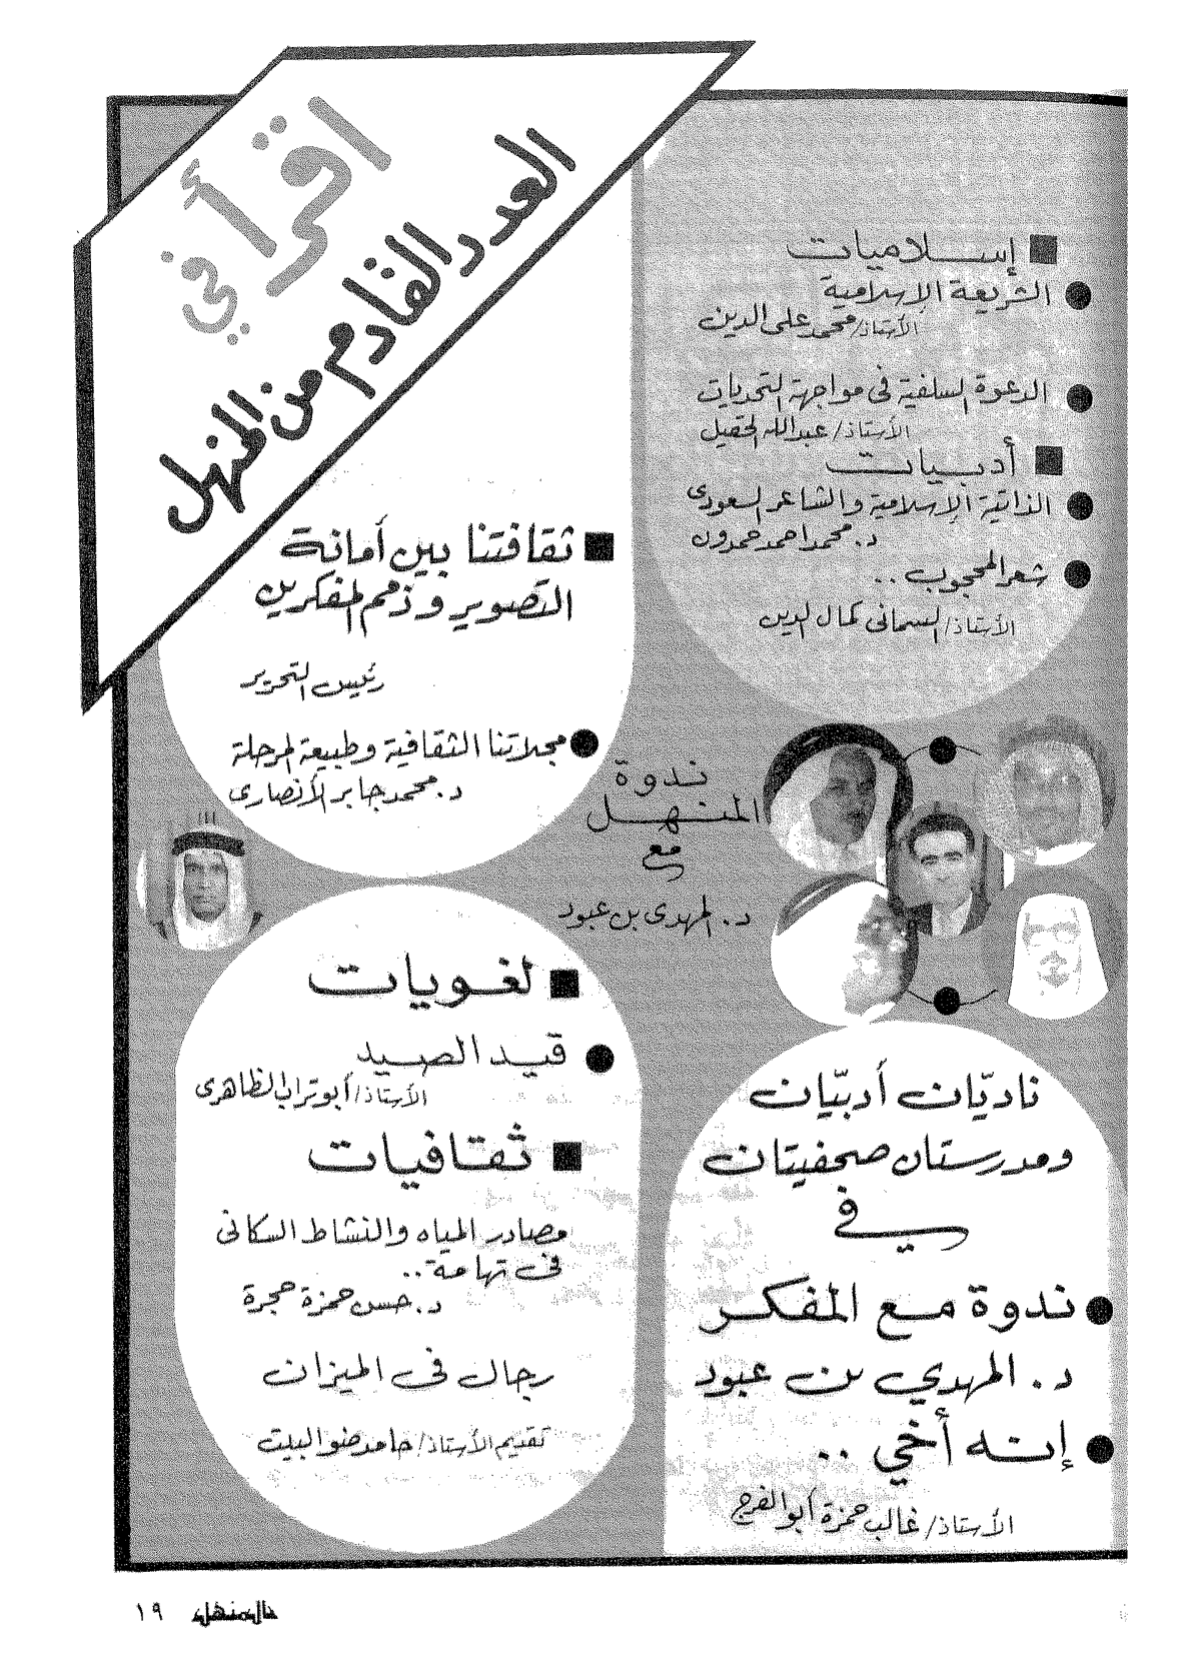 اقرأ في
العدد القادم من المنهل
■ إسلاميات
● الشريعة الإسلامية
الأستاذ/ محمد على الدين
● الدعوة السلفية فى مواجهة التحديات
الأستاذ/ عبدالله الحقيل
■ أدبيات
● الذاتية الإسلامية والشاعر السعودى
د. محمد احمد حمدون
● شعر المحجوب ..
الأستاذ/ السمانى كمال الدين
■ ثقافتنا بين أمانة
التصوير وذمم المفكرين
رئيس التحرير
● مجلاتنا الثقافية وطبيعة المرحلة
د. محمد جابر الأنصارى
ندوة
المنهل
مع
د. المهدى بن عبود
■ لغويات
● قيد الصيد
الأستاذ/ أبوتراب الظاهرى
■ ثقافيات
مصادر المياه والنشاط السكانى
فى تهامة ..
د. حسن حمزة حجرة
رجال فى الميزان
تقديم الأستاذ/ حامد ضو البيت
ناديّان أدبيّان
ومدرستان صحفيتان
في
● ندوة مع المفكر
د. المهدي بن عبود
● إنه أخي ..
الأستاذ/ غالب حمزة أبوالفرج
المنهل ١٩